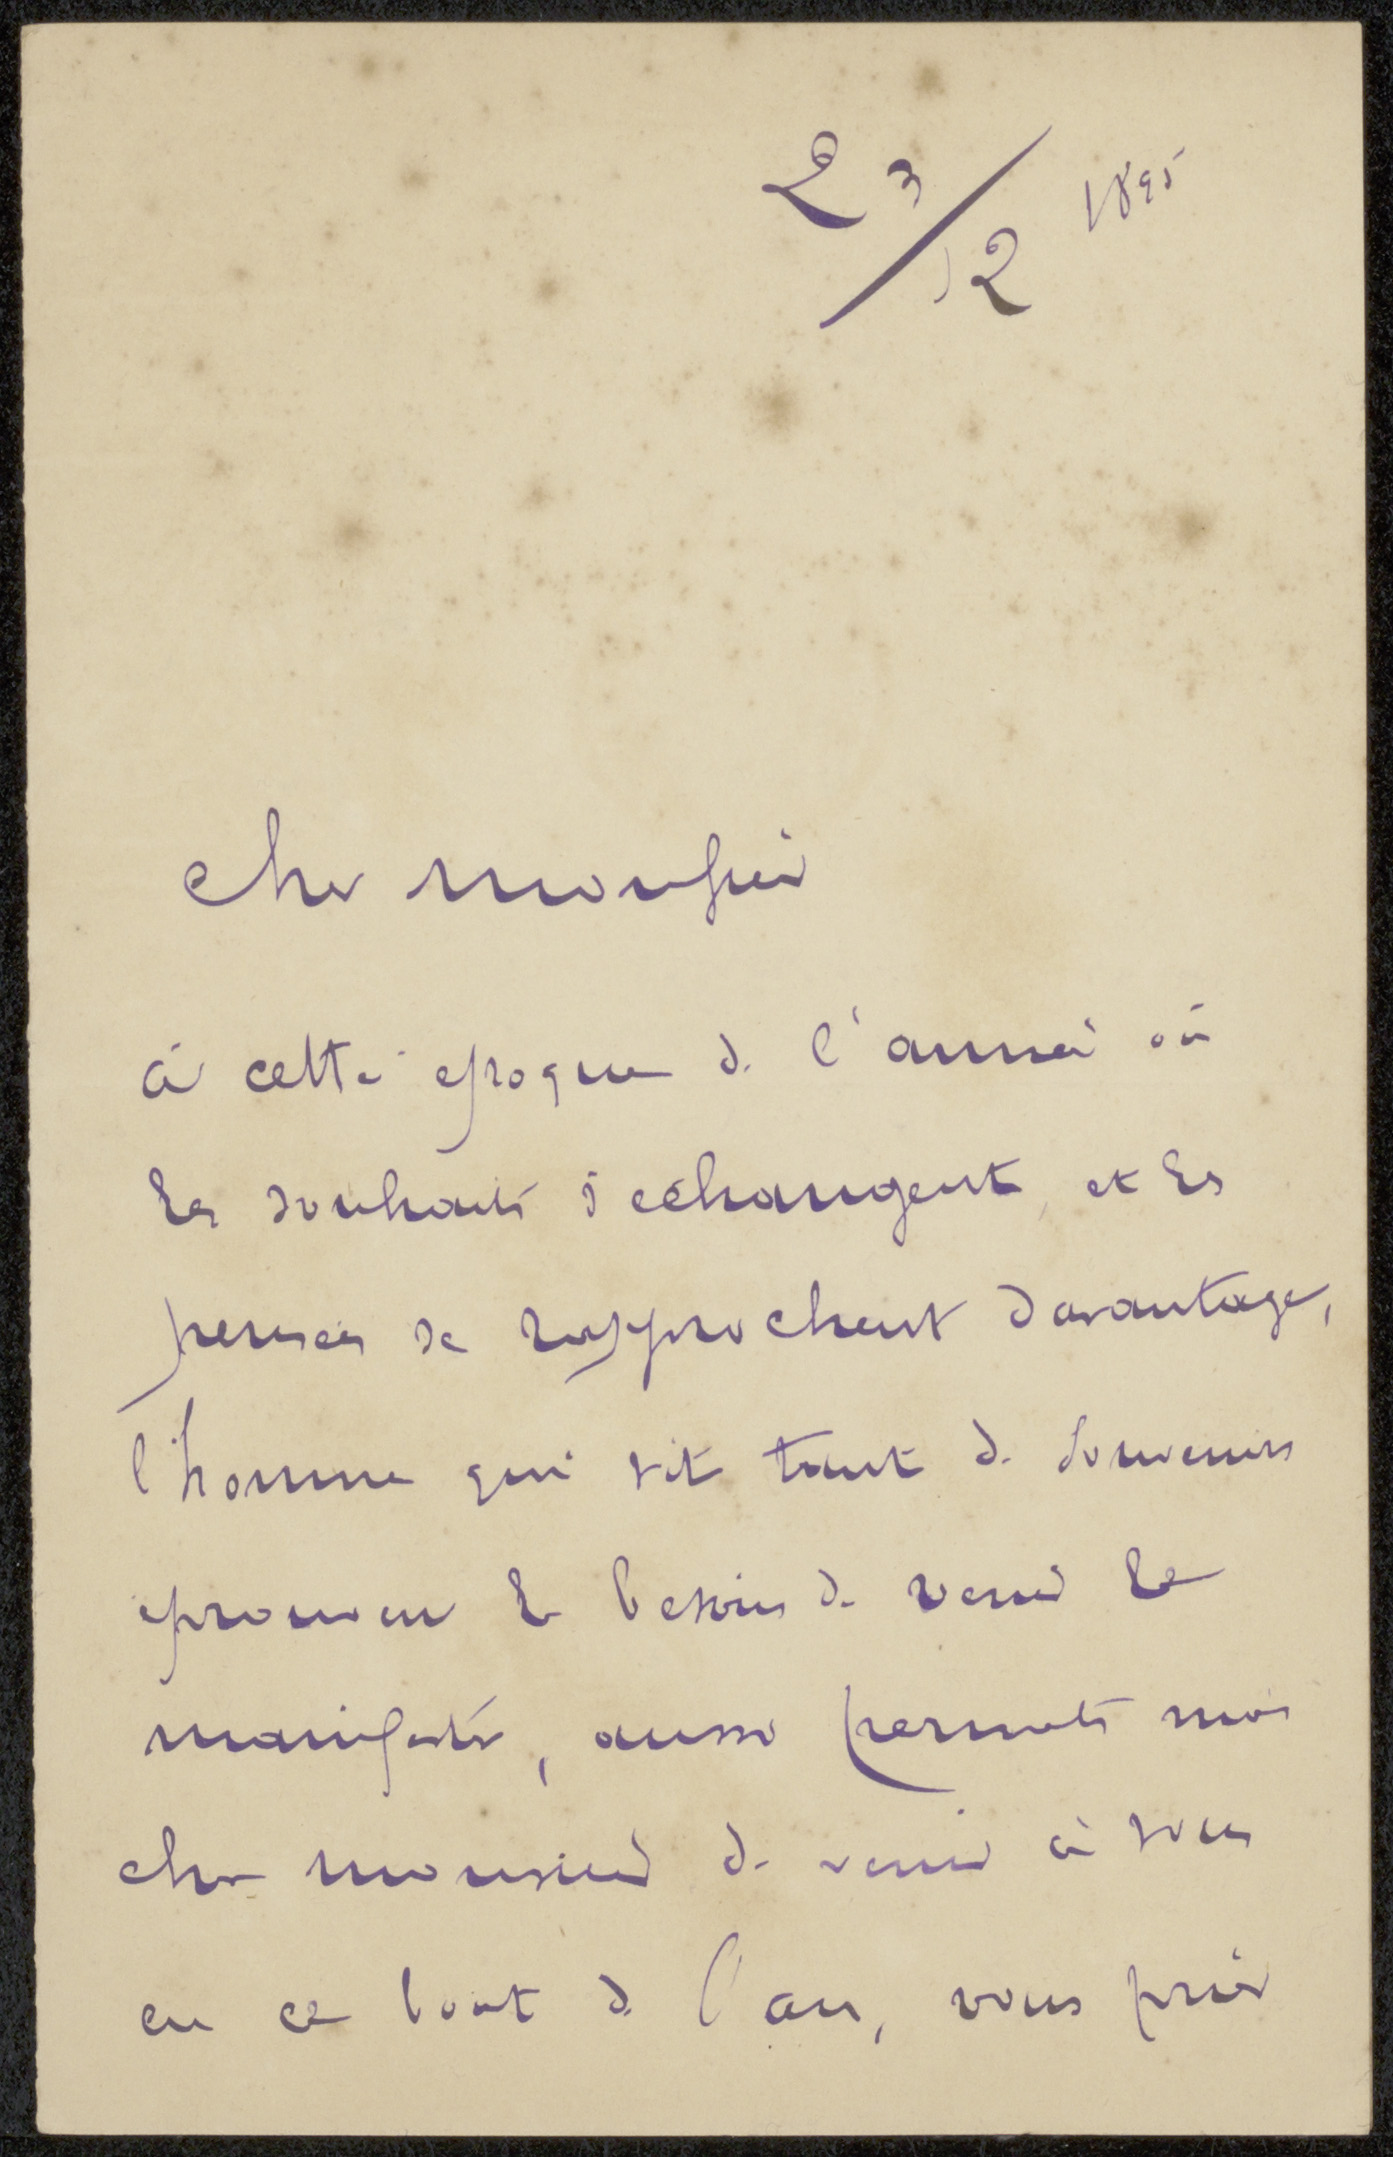 23/12 1895
cher monsieur
à cette epoque de l'année où
les souhaits s'echangent, et les
pensées se rapprochent davantage,
l'homme qui vit tant de souvenirs
eprouve le besoin de venir le
manifester, aussi permets moi
cher monsieur de venir à vous
en ce bout de l'an, vous prier